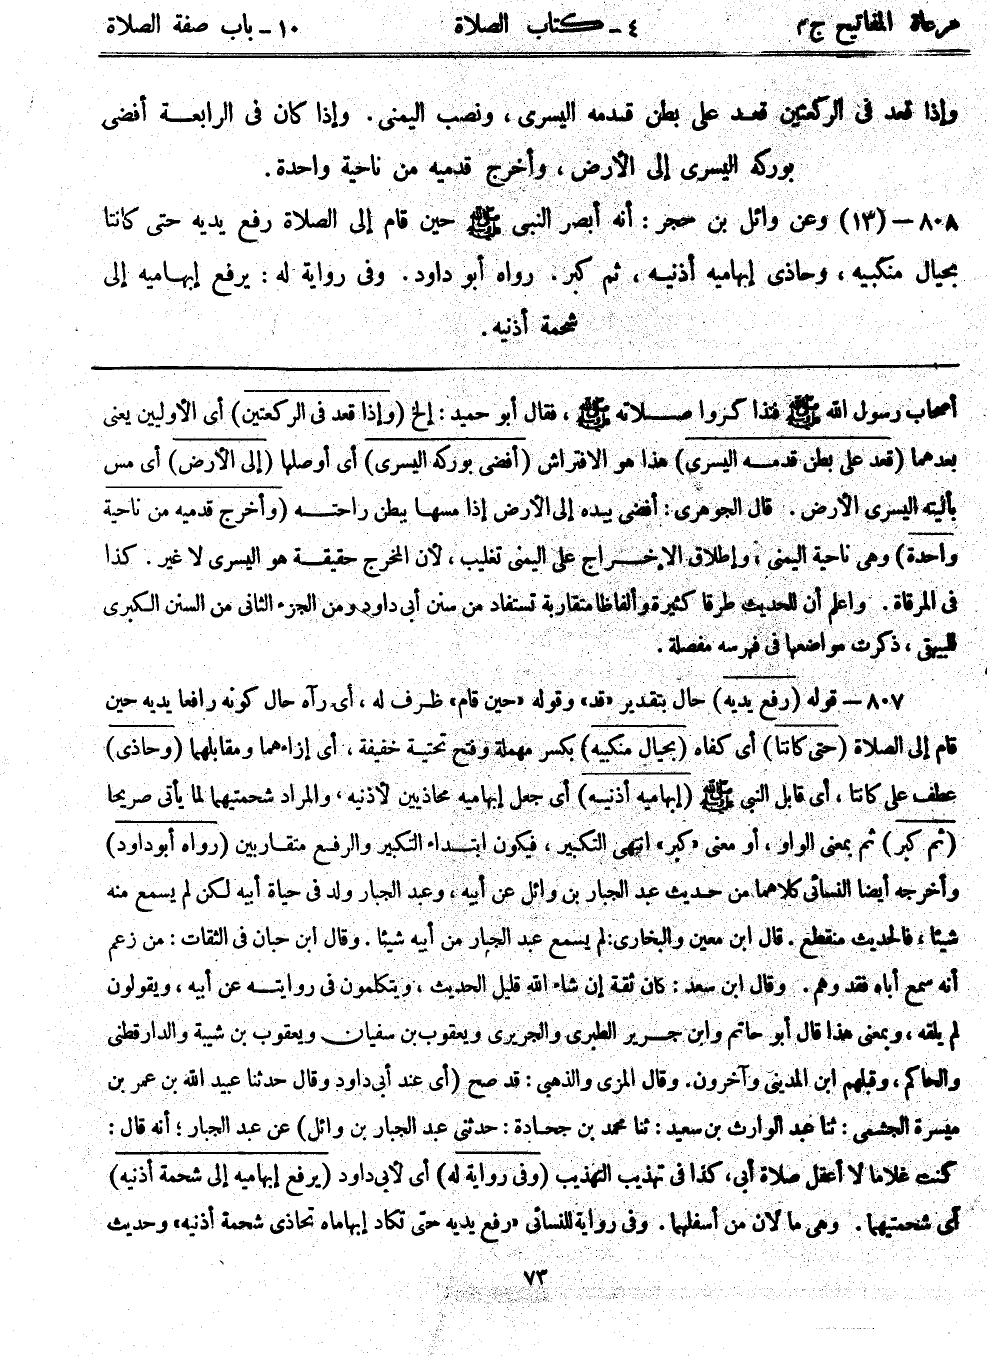 مرعاة المفاتيح ج ٣ ٤ ـ كتاب الصلاة ١٠ ـ باب صفة الصلاة
وإذا قعد فى الركعتين قعد على بطن قدمه اليسرى ، ونصب اليمنى . وإذا كان فى الرابعة أفضى
بوركه اليسرى إلى الأرض ، وأخرج قدميه من ناحية واحدة .
٨٠٨ – (١٣) وعن وائل بن حجر : أنه أبصر النبى ﷺ حين قام إلى الصلاة رفع يديه حتى كانتا
بحيال منكبيه ، وحاذى إبهاميه أذنيه ، ثم كبر . رواه أبو داود . وفى رواية له : يرفع إبهاميه إلى
شحمة أذنيه .
أصحاب رسول الله ﷺ فتذا كروا صلاته ﷺ ، فقال أبو حميد : إلخ (وإذا قعد فى الركعتين) أى الأوليين يعنى
بعدهما (قعد على بطن قدمه اليسرى) هذا هو الافتراش (أفضى بوركه اليسرى) أى أوصلها (إلى الأرض) أى مس
بأليته اليسرى الأرض . قال الجوهرى : أفضى بيده إلى الأرض إذا مسها ببطن راحته (وأخرج قدميه من ناحية
واحدة) وهى ناحية اليمنى ، وإطلاق الإخراج على اليمنى تغليب ، لأن المخرج حقيقة هو اليسرى لا غير . كذا
فى المرقاة . واعلم أن للحديث طرقا كثيرة وألفاظا متقاربة تستفاد من سنن أبى داود ومن الجزء الثانى من السنن الكبرى
للبيهقى ، ذكرت مواضعها فى فهرسه مفصلة .
٨٠٧ – قوله (رفع يديه) حال بتقدير «قد» وقوله «حين قام» ظرف له ، أى رآه حال كونه رافعا يديه حين
قام إلى الصلاة (حتى كانتا) أى كفاه (بحيال منكبيه) بكسر مهملة وفتح تحتية خفيفة ، أى إزاءهما ومقابلهما (وحاذى)
عطف على كانتا ، أى قابل النبى ﷺ (إبهاميه أذنيه) أى جعل إبهاميه محاذيين لأذنيه ، والمراد شحمتيهما لما يأتى صريحا
(ثم كبر) ثم بمعنى الواو ، أو معنى «كبر» انتهى التكبير ، فيكون ابتداء التكبير والرفع متقاربين (رواه أبوداود)
وأخرجه أيضا النسائى كلاهما من حديث عبد الجبار بن وائل عن أبيه ، وعبد الجبار ولد فى حياة أبيه لكن لم يسمع منه
شيئا ، فالحديث منقطع . قال ابن معين والبخارى : لم يسمع عبد الجبار من أبيه شيئا . وقال ابن حبان فى الثقات : من زعم
أنه سمع أباه فقد وهم . وقال ابن سعد : كان ثقة إن شاء الله قليل الحديث ، ويتكلمون فى روايته عن أبيه ، ويقولون
لم يلقه ، وبمعنى هذا قال أبو حاتم وابن جرير الطبرى والجريرى ويعقوب بن سفيان ويعقوب بن شيبة والدارقطنى
والحاكم ، وقبلهم ابن المدينى وآخرون . وقال المزى والذهبى : قد صح (أى عند أبى داود وقال حدثنا عبيد الله بن عمر بن
ميسرة الجشمى : ثنا عبد الوارث بن سعيد : ثنا محمد بن جحادة : حدثنى عبد الجبار بن وائل) عن عبد الجبار ؛ أنه قال :
كنت غلاما لا أعقل صلاة أبى ، كذا فى تهذيب التهذيب (وفى رواية له) أى لأبى داود (يرفع إبهاميه إلى شحمة أذنيه)
أى شحمتيهما . وهى ما لان من أسفلهما . وفى رواية للنسائى «رفع يديه حتى تكاد إبهاماه تحاذى شحمة أذنيه» وحديث
٧٣